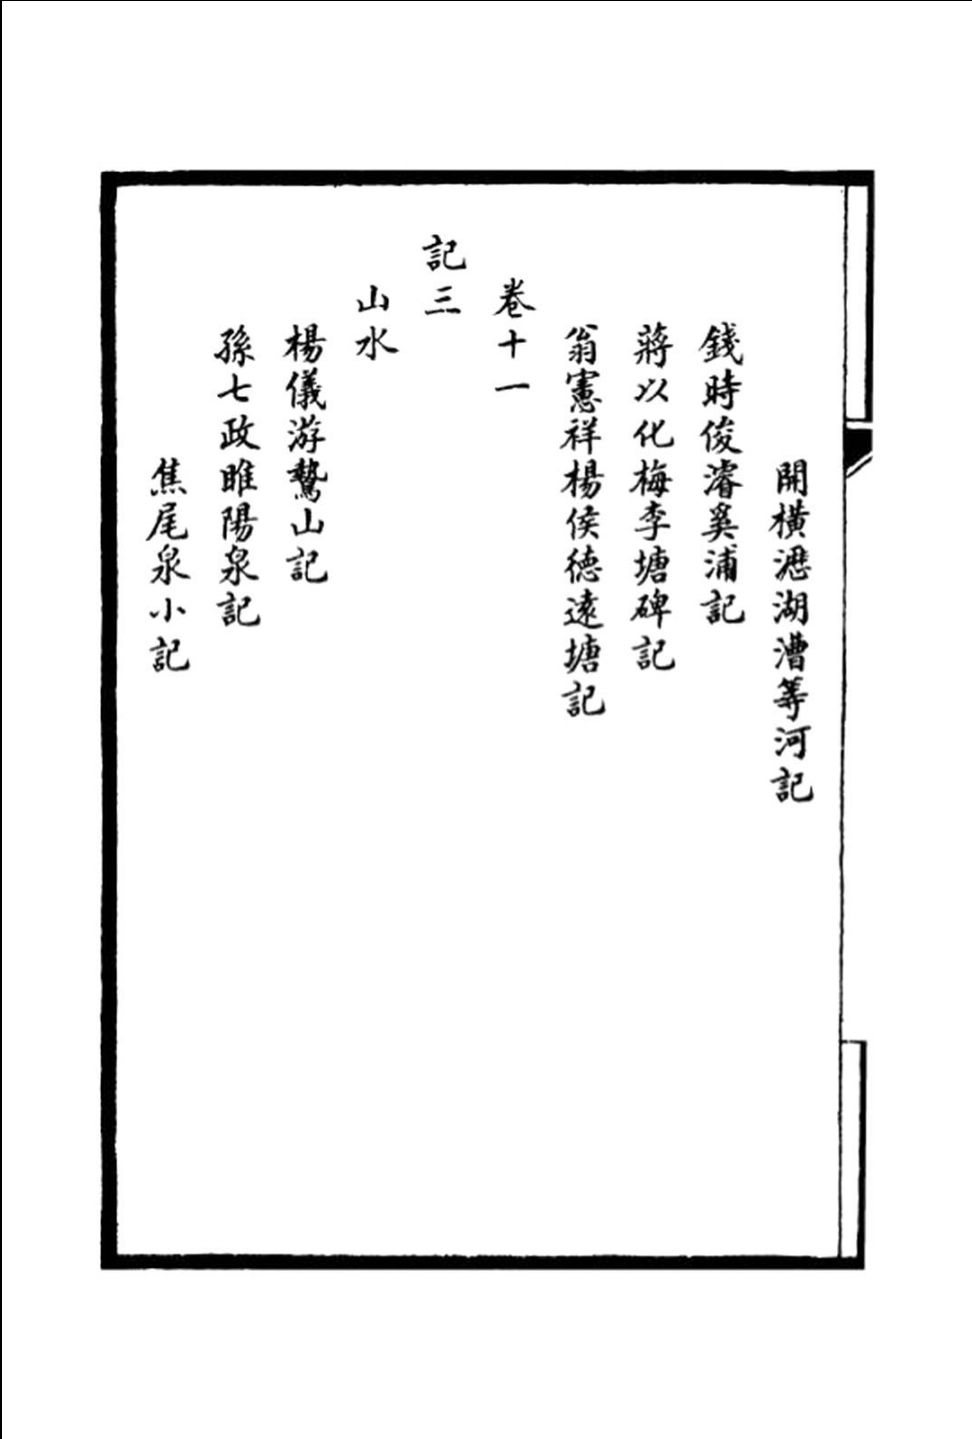 開橫瀝湖漕等河記
錢時俊濬奚浦記
蔣以化梅李塘碑記
翁憲祥楊侯德遠塘記
卷十一
記三
山水
楊儀游鷲山記
孫七政睢陽泉記
焦尾泉小記